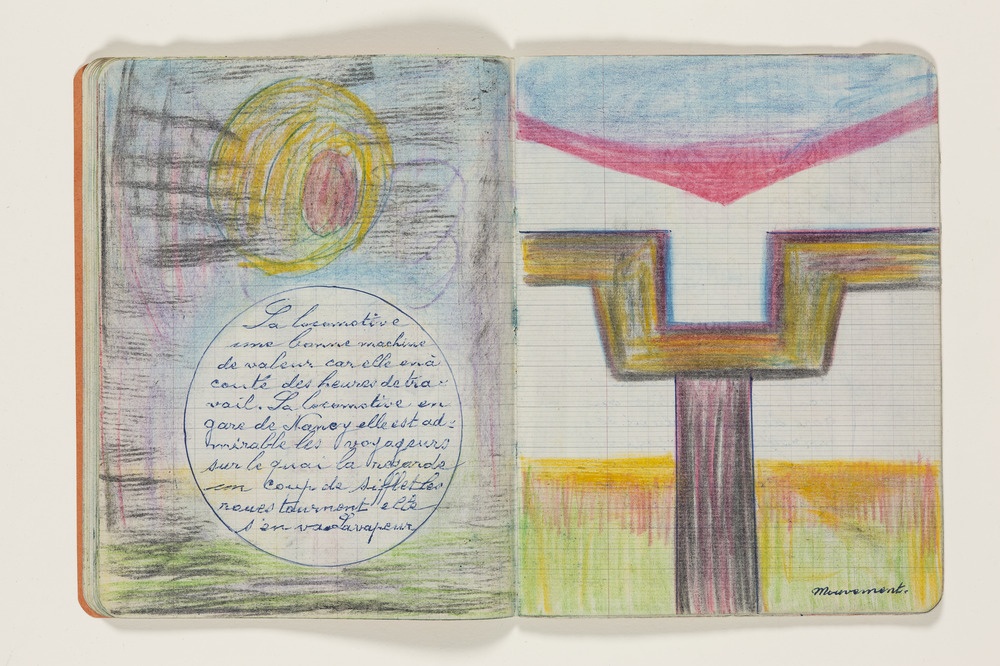 La locomotive
une bonne machine
de valeur car elle en à
couté des heures de tra-
vail. La locomotive en
gare de Nancy elle est ad=
mirable les voyageurs
sur le quai la regarde
un coup de sifflet les
roues tournent elle
s'en va la vapeur
Mouvement.